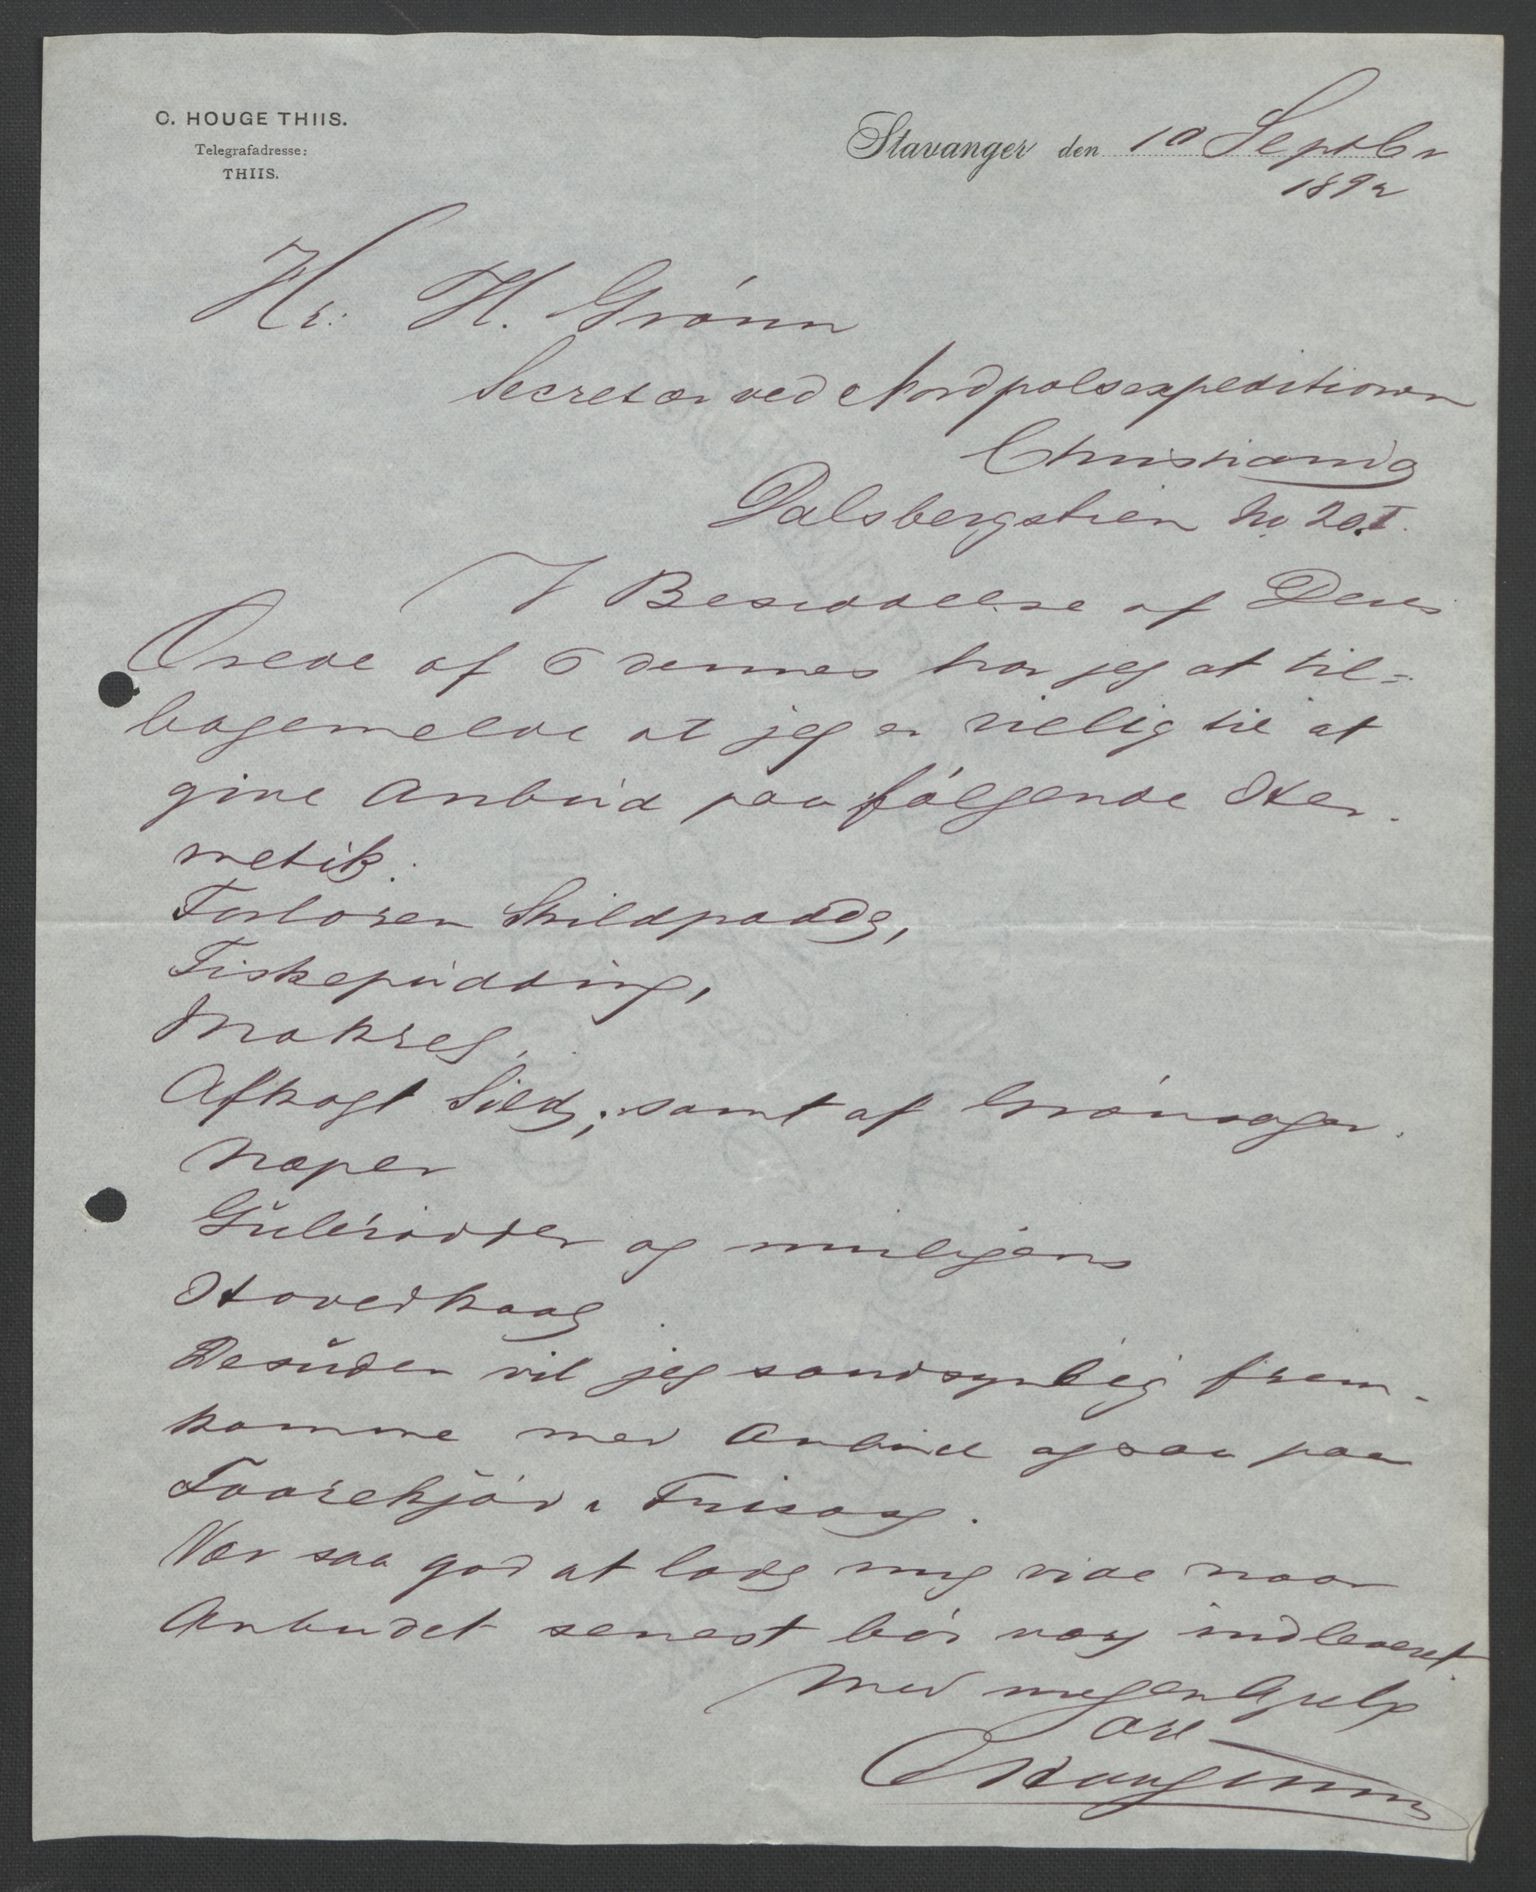 C. HOUGE THIIS.
Telegrafadresse:
THIIS.
Stavanger den 10 Septbr
1892
Hr: H. Grönn
Secretær ved Nordpolsexpeditionen
Christiania
Dalsbergstien No 20.I.
I Besiddelse af Deres
Ærede af 6 dennes har jeg at til=
bagemelde at jeg er villig til at
give Anbud paa fölgende Her-
metik.
Forloren Skildpadde,
Fiskepudding,
Makrel,
Afkogt Sild, samt af Grönsager.
Næper
Gulerödder og muligens
Hovedkaal
Desuden vil jeg sandsynlig frem-
komme med Anbud ogsaa paa
Faarekjöd i
Vær saa god at lade mig vide naar
Anbudet senest bör være indleveret.
Med megen Agtelse
C Houge Thiis